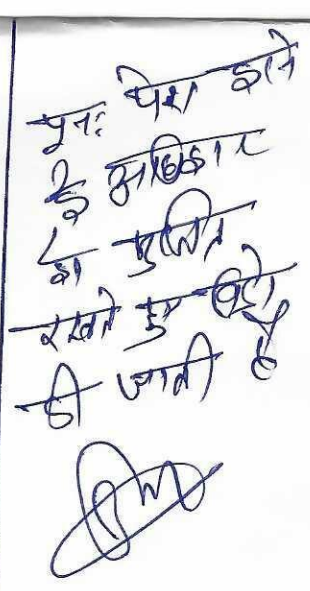 पुनः पेश करने
के अधिकार
को सुरक्षित
रखते हुए
की जाती है